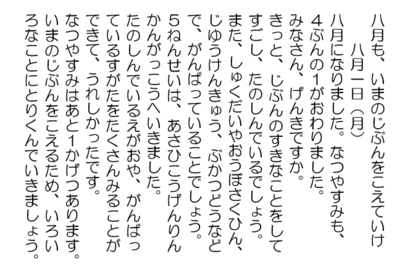 八月も、いまのじぶんをこえていけ
八月一日（月）
八月になりました。なつやすみも、
４ぶんの１がおわりました。
みなさん、げんきですか。
きっと、じぶんのすきなことをして
すごし、たのしんでいるでしょう。
また、しゅくだいやおうぼさくひん、
じゆうけんきゅう、ぶかつどうなど
で、がんばっていることでしょう。
５ねんせいは、あさひこうげんりん
かんがっこうへいきました。
たのしんでいるえがおや、がんばっ
ているすがたをたくさんみることが
できて、うれしかったです。
なつやすみはあと１かげつあります。
いまのじぶんをこえるため、いろい
ろなことにとりくんでいきましょう。